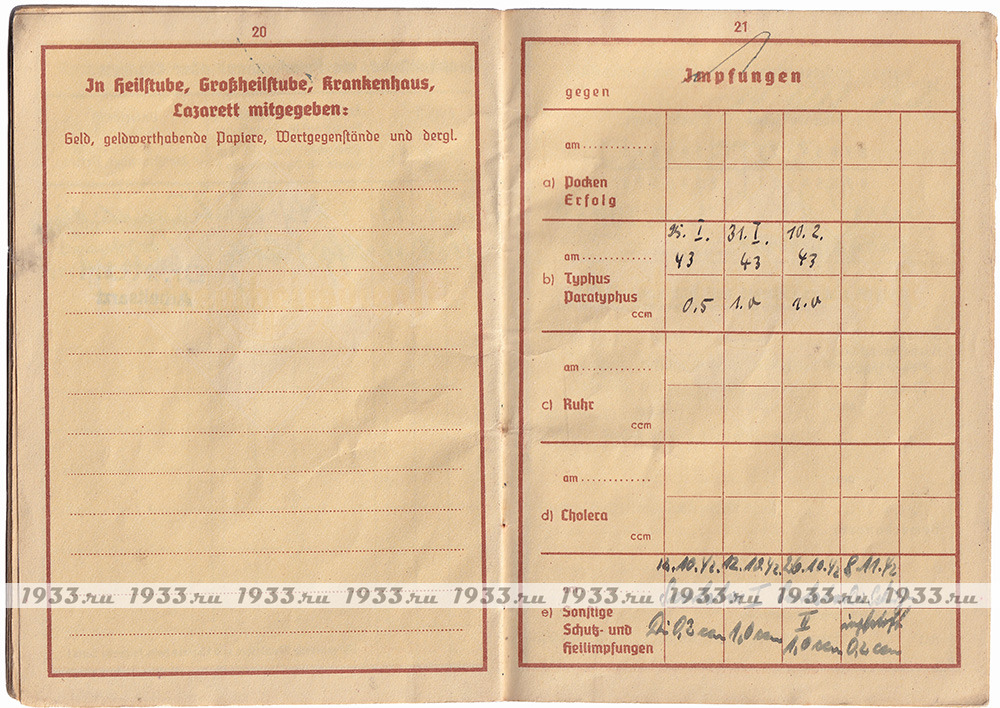 20
In Heilstube, Großheilstube, Krankenhaus,
Lazarett mitgegeben:
Geld, geldwerthabende Papiere, Wertgegenstände und dergl.
21
Impfungen
gegen
am
a) Pocken
Erfolg
25. I. 31. I. 10. 2.
am 43 43 43
b) Typhus
Paratyphus
ccm 0.5 1.0 1.0
am
c) Ruhr
ccm
am
d) Cholera
ccm
12.10.42 26.10.42 8.11.42
1933.ru 1933.ru 1933.ru 1933.ru 1933.ru 1933.ru 1933.ru 1933.ru 1933.ru
e) Sonstige
Schutz- und
Heilimpfungen
II
impfstoff
0,2 ccm 1,0 ccm 1,0 ccm 0,2 ccm